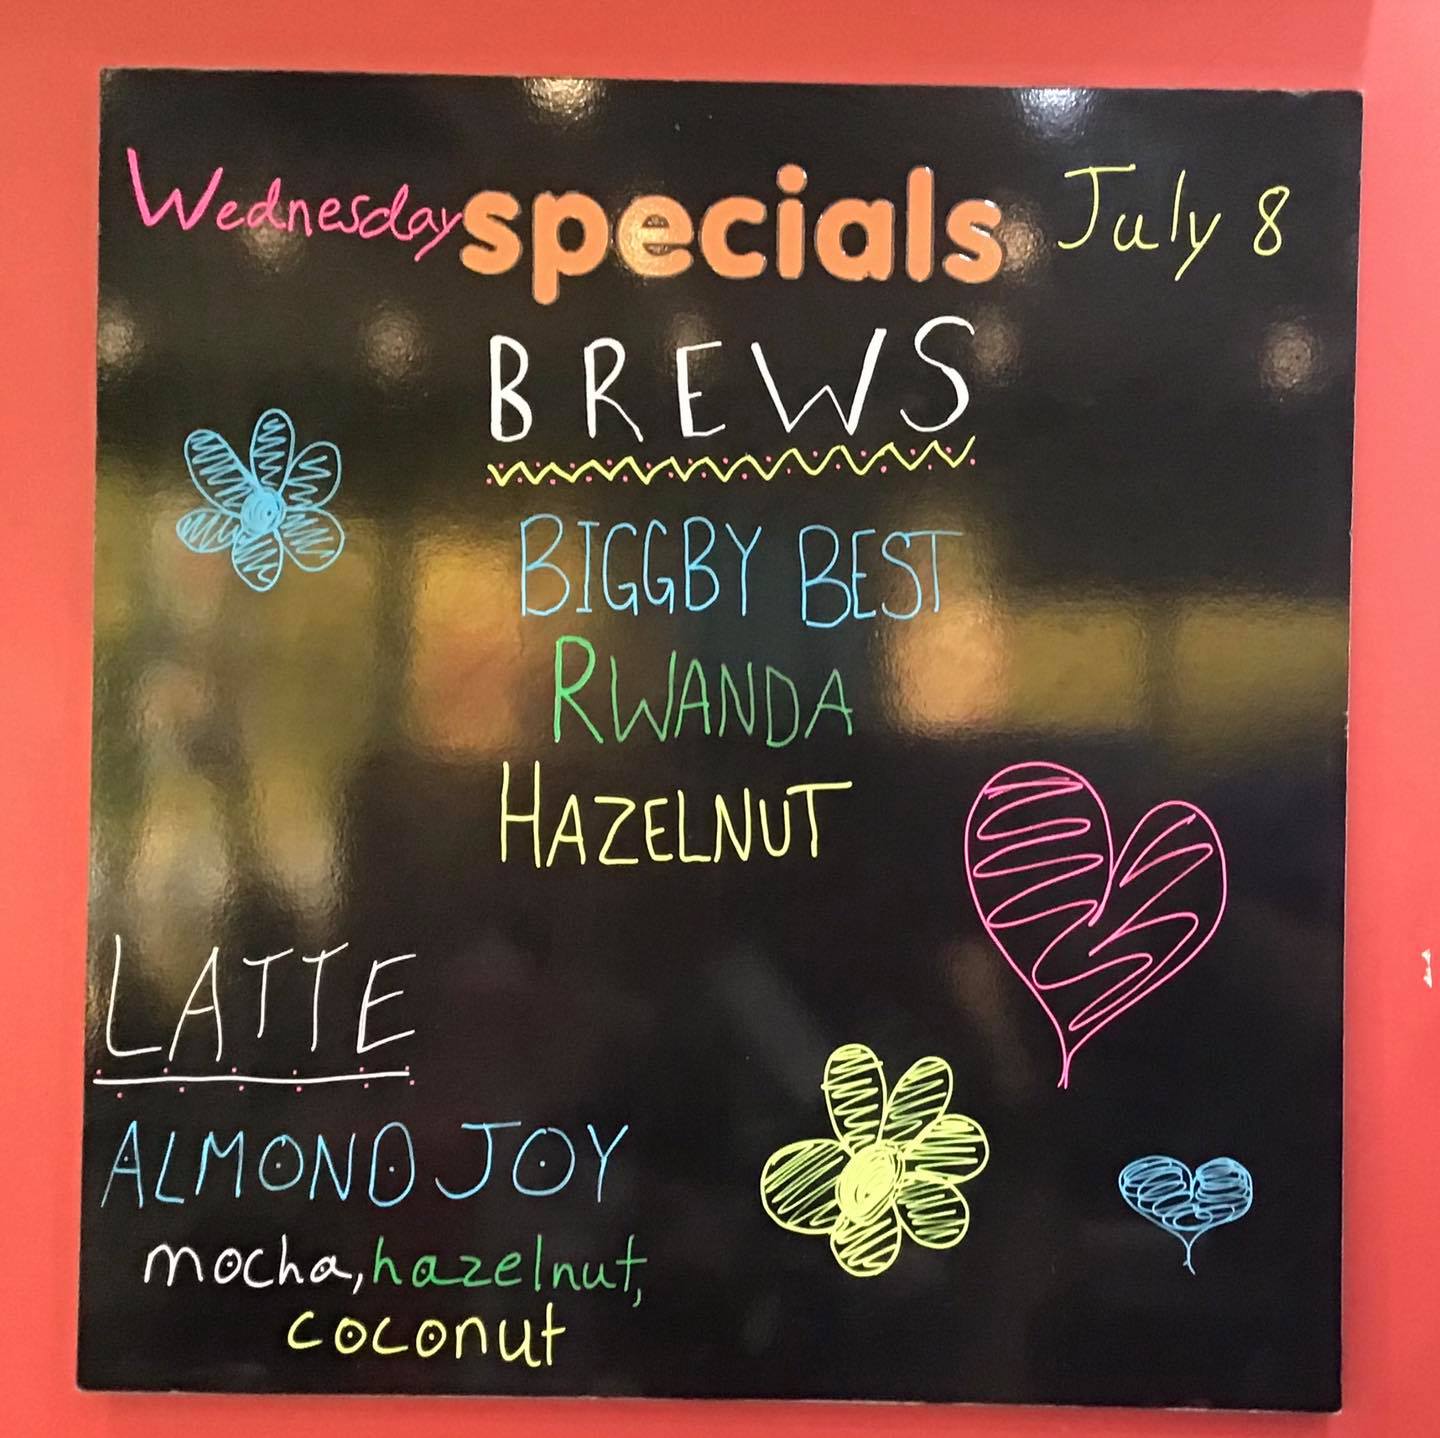 Wednesday specials July 8
BREWS
BIGGBY BEST
RWANDA
HAZELNUT
LATTE
ALMOND JOY
mocha, hazelnut,
coconut